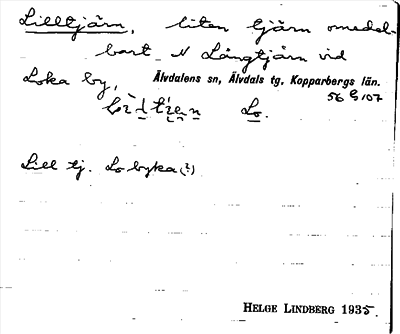 Lilltjärn, liten tjärn omedel-
bart N Långtjärn vid
Loka by, Älvdalens sn, Älvdals tg. Kopparbergs län.
56 G 107
Lo.
Lill tj. Lo byka (?)
HELGE LINDBERG 1935.